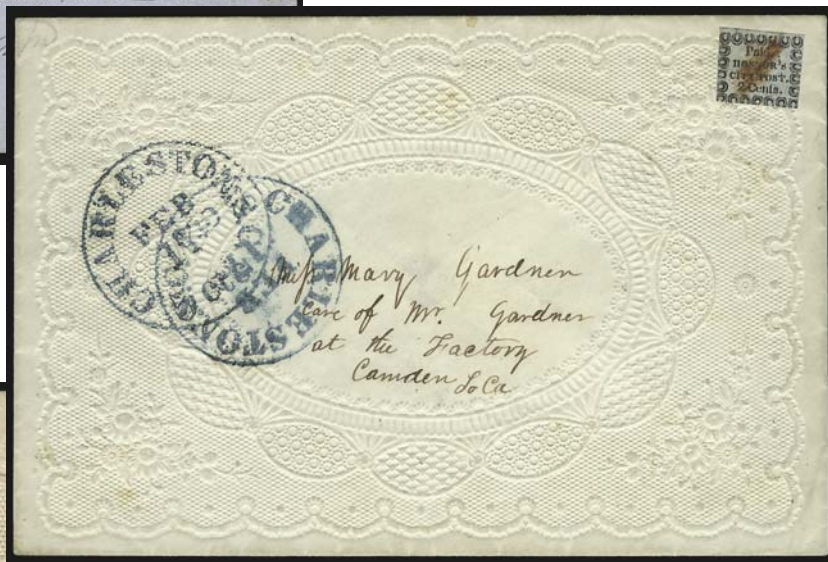 Paid.
HONOUR's
CITY POST.
2 Cents.
CHARLESTON
FEB
CHARLESTON
Miss Mary Gardner
Care of Mr. Gardner
at the Factory
Camden So Ca